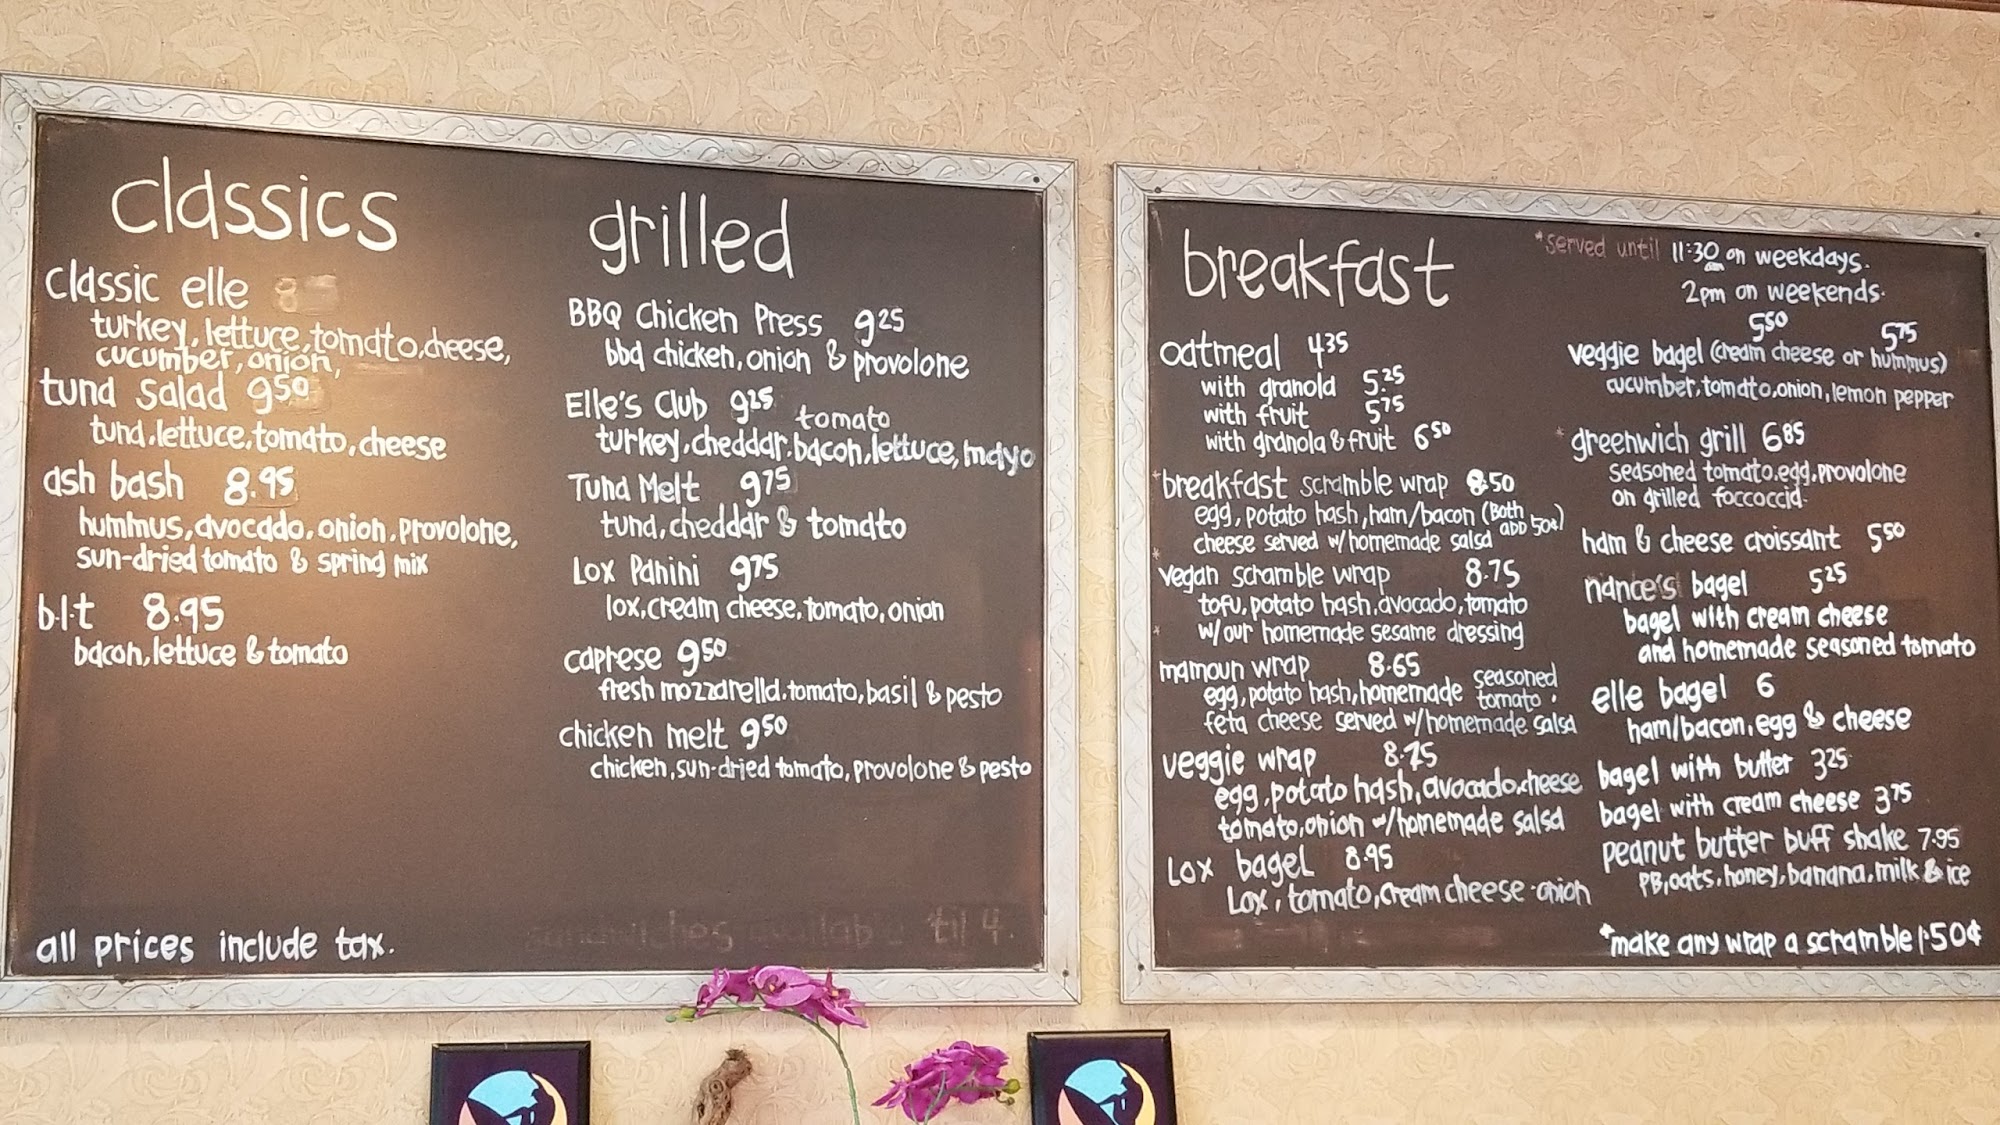 classics
classic elle 8
turkey, lettuce, tomato, cheese,
cucumber, onion,
tuna salad 9.50
tuna, lettuce, tomato, cheese
ash bash 8.95
hummus, avocado, onion, provolone,
sun-dried tomato & spring mix
b.l.t 8.95
bacon, lettuce & tomato
all prices include tax.
grilled
BBQ Chicken Press 9.25
bbq chicken, onion & provolone
Elle's Club 9.25
tomato
turkey, cheddar, bacon, lettuce, mayo
Tuna Melt 9.75
tuna, cheddar & tomato
Lox Panini 9.75
lox, cream cheese, tomato, onion
caprese 9.50
fresh mozzarella, tomato, basil & pesto
chicken melt 9.50
chicken, sun-dried tomato, provolone & pesto
sandwiches available 'til 4.
breakfast
*served until 11:30 am on weekdays.
2pm on weekends.
oatmeal 4.35
with granola 5.25
with fruit 5.75
with granola & fruit 6.50
*breakfast scramble wrap 8.50
egg, potato hash, ham/bacon (Both add 50¢)
cheese served w/homemade salsa
*vegan scramble wrap 8.75
tofu, potato hash, avocado, tomato
w/our homemade sesame dressing
*mamoun wrap 8.65
egg, potato hash, homemade seasoned tomato,
feta cheese served w/homemade salsa
veggie wrap 8.75
egg, potato hash, avocado, cheese
tomato, onion w/homemade salsa
Lox bagel 8.95
Lox, tomato, cream cheese, onion
5.50 5.75
veggie bagel (cream cheese or hummus)
cucumber, tomato, onion, lemon pepper
*greenwich grill 6.85
seasoned tomato, egg, provolone
on grilled foccoccia.
ham & cheese croissant 5.50
nance's bagel 5.25
bagel with cream cheese
and homemade seasoned tomato
elle bagel 6
ham/bacon, egg & cheese
bagel with butter 3.25
bagel with cream cheese 3.75
peanut butter buff shake 7.95
PB, oats, honey, banana, milk & ice
*make any wrap a scramble 1.50¢